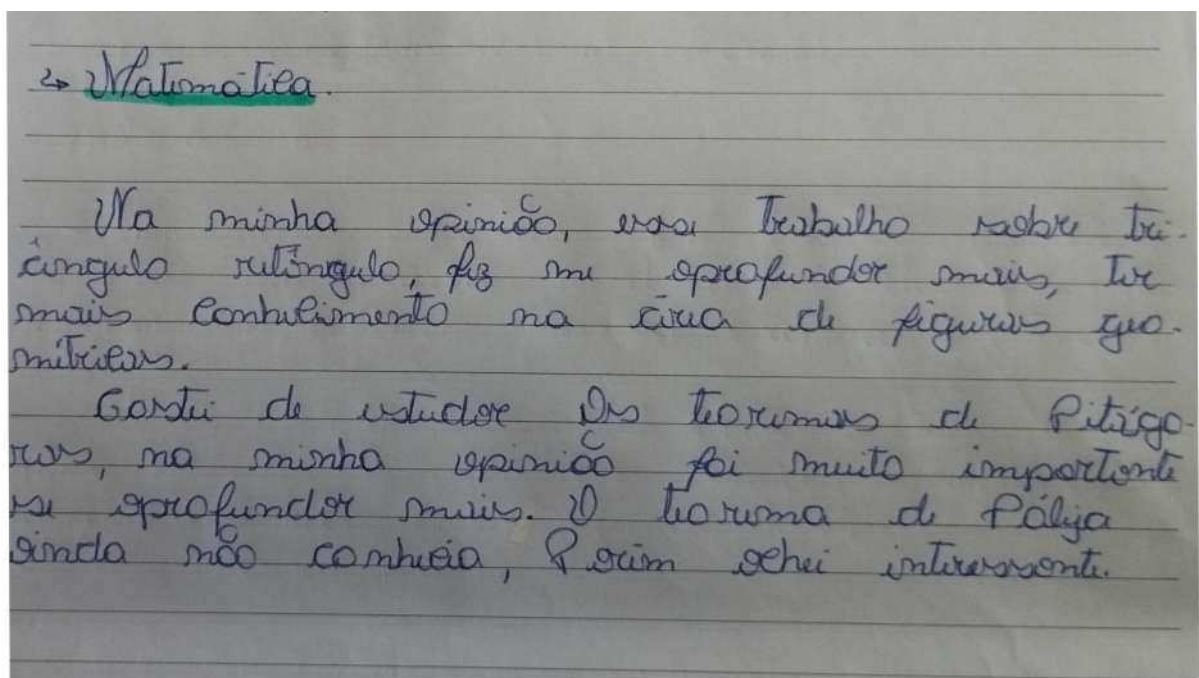 ↳ Matemática.
Na minha opinião, essa trabalho sobre tri-
ângulo retângulo, fiz me aprofundar mais, ter
mais conhecimento na área de figuras geo-
métricas.
Gostei de estudar Os teoremas de Pitágo-
ras, na minha opinião foi muito importante
se aprofundar mais. O teorema de Pólya
ainda não conhecia, Porém achei interessante.